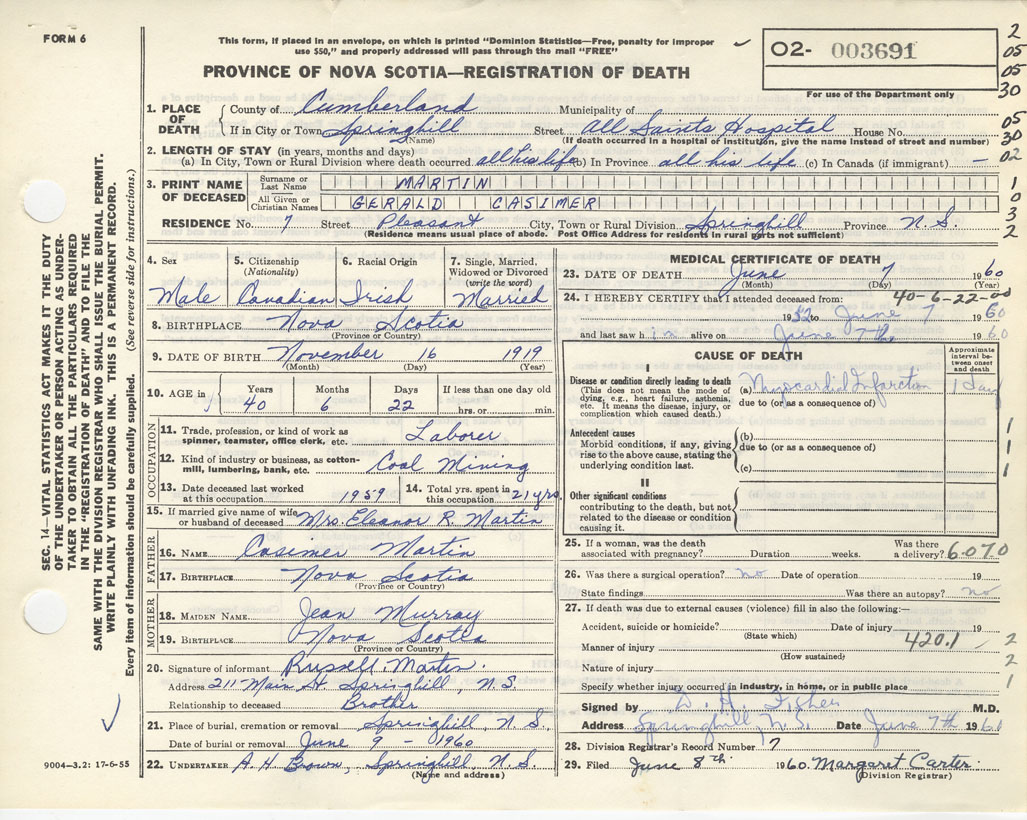 FORM 6
This form, if placed in an envelope, on which is printed "Dominion Statistics—Free, penalty for improper
use $50," and properly addressed will pass through the mail "FREE"
O2- 003691
For use of the Department only
PROVINCE OF NOVA SCOTIA—REGISTRATION OF DEATH
2
05
05
30
05
30
02
1
0
3
2
1. PLACE OF DEATH
County of Cumberland Municipality of
If in City or Town Springhill Street All Saints Hospital House No.
(Name) (If death occurred in a hospital of institution, give the name instead of street and number)
2. LENGTH OF STAY (in years, months and days)
(a) In City, Town or Rural Division where death occurred all his life (b) In Province all his life (c) In Canada (if immigrant) —
3. PRINT NAME OF DECEASED
Surname or Last Name MARTIN
All Given or Christian Names GERALD CASIMER
RESIDENCE No. 7 Street Pleasant City, Town or Rural Division Springhill Province N.S.
(Residence means usual place of abode. Post Office Address for residents in rural parts not sufficient)
4. Sex 5. Citizenship (Nationality) 6. Racial Origin 7. Single, Married, Widowed or Divorced (write the word)
Male Canadian Irish Married
8. BIRTHPLACE Nova Scotia
(Province or Country)
9. DATE OF BIRTH November 16 1919
(Month) (Day) (Year)
10. AGE in Years Months Days If less than one day old
40 6 22 hrs. or min.
OCCUPATION
11. Trade, profession, or kind of work as spinner, teamster, office clerk, etc. Laborer
12. Kind of industry or business, as cotton-mill, lumbering, bank, etc. Coal Mining
13. Date deceased last worked at this occupation 1959 14. Total yrs. spent in this occupation 21 yrs.
15. If married give name of wife or husband of deceased Mrs. Eleanor R. Martin
FATHER
16. NAME Casimer Martin
17. BIRTHPLACE Nova Scotia
(Province or Country)
MOTHER
18. MAIDEN NAME Jean Murray
19. BIRTHPLACE Nova Scotia
(Province or Country)
20. Signature of informant Russell Martin.
Address 211 Main St. Springhill, N.S.
Relationship to deceased Brother
21. Place of burial, cremation or removal Springhill N.S.
Date of burial or removal June 9 - 1960
22. UNDERTAKER A.H. Brown, Springhill, N.S.
(Name and address)
MEDICAL CERTIFICATE OF DEATH
23. DATE OF DEATH June 7 1960
(Month) (Day)
24. I HEREBY CERTIFY that I attended deceased from: 40-6-22-00
1952 to June 7 1960
and last saw him alive on June 7th 1960
CAUSE OF DEATH
Approximate interval between onset and death
I
Disease or condition directly leading to death
(This does not mean the mode of dying, e.g., heart failure, asthenia, etc. It means the disease, injury, or complication which caused death.)
(a) Myocardial Infarction 1 day
due to (or as a consequence of)
Antecedent causes
Morbid conditions, if any, giving rise to the above cause, stating the underlying condition last.
(b)
due to (or as a consequence of)
(c)
1
1
1
II
Other significant conditions
contributing to the death, but not related to the disease or condition causing it.
25. If a woman, was the death associated with pregnancy? Duration weeks. Was there a delivery? 6070
26. Was there a surgical operation? no Date of operation 19
State findings Was there an autopsy? no
27. If death was due to external causes (violence) fill in also the following:—
Accident, suicide or homicide? Date of injury 19
(State which)
Manner of injury 420.1 2
(How sustained)
Nature of injury 2
Specify whether injury occurred in industry, in home, or in public place 1
Signed by D. H. Fisher M.D.
Address Springhill, N.S. Date June 7th 1960
28. Division Registrar's Record Number 7
29. Filed June 8th 1960. Margaret Carter.
(Division Registrar)
SEC. 14—VITAL STATISTICS ACT MAKES IT THE DUTY
OF THE UNDERTAKER OR PERSON ACTING AS UNDER-
TAKER TO OBTAIN ALL THE PARTICULARS REQUIRED
IN THE "REGISTRATION OF DEATH" AND TO FILE THE
SAME WITH THE DIVISION REGISTRAR WHO SHALL ISSUE THE BURIAL PERMIT.
WRITE PLAINLY WITH UNFADING INK. THIS IS A PERMANENT RECORD.
Every item of information should be carefully supplied. (See reverse side for instructions.)
9004-3.2: 17-6-55